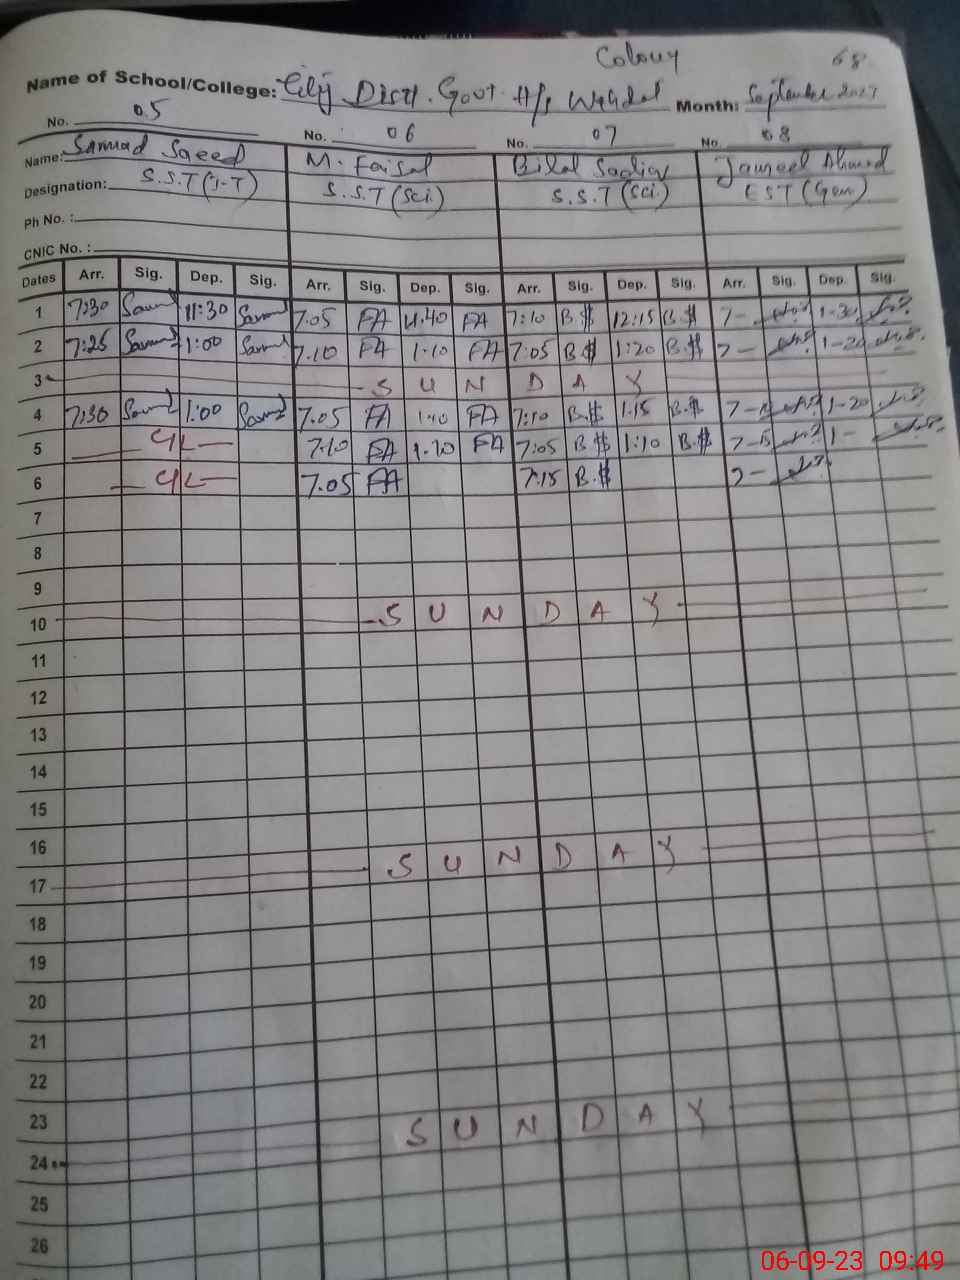 Colony 68
Name of School/College: City Distt. Govt. H/S Wahdat Month: September 2023
No. 05 No. 06 No. 07 No. 08
Name: Samad Saeed M. Faisal Bilal Sadiq Jameel Ahmed
Designation: S.S.T (I-T) S.S.T (Sci) S.S.T (Sci) EST (Gen)
Ph No. :
CNIC No. :
Dates Arr. Sig. Dep. Sig. Arr. Sig. Dep. Sig. Arr. Sig. Dep. Sig. Arr. Sig. Dep. Sig.
1 7:30 11:30 7.05 FA 11.40 FA 7:10 B.$ 12:15 B.$ 7- 1-30
2 7:25 1:00 7.10 FA 1.10 FA 7:05 B.$ 1:20 B.$ 7- 1-20
3 SUNDAY
4 7:30 1:00 7.05 FA 1.10 FA 7:10 B.$ 1.15 B.$ 7- 1-20
5 C/L 7.10 FA FA 7:05 B.$ 1:10 B.$ 7- 1-
6 C/L 7.05 FA 7:15 B.$ 7-
7
8
9
10 SUNDAY
11
12
13
14
15
16
17 SUNDAY
18
19
20
21
22
23
24 SUNDAY
25
26
06-09-23 09:49